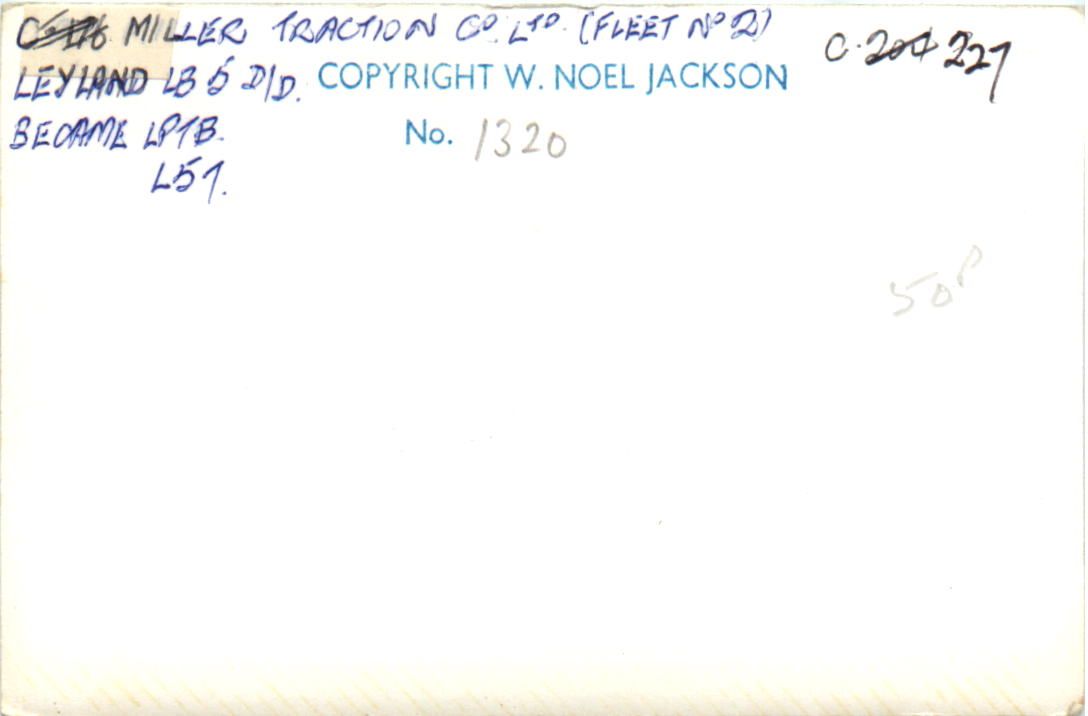 C-116 MILLER TRACTION CO. LTD. (FLEET No 2)
C. 204 227
LEYLAND LB 5 D/D.
COPYRIGHT W. NOEL JACKSON
BECAME LPTB.
No. 1320
L57.
50P